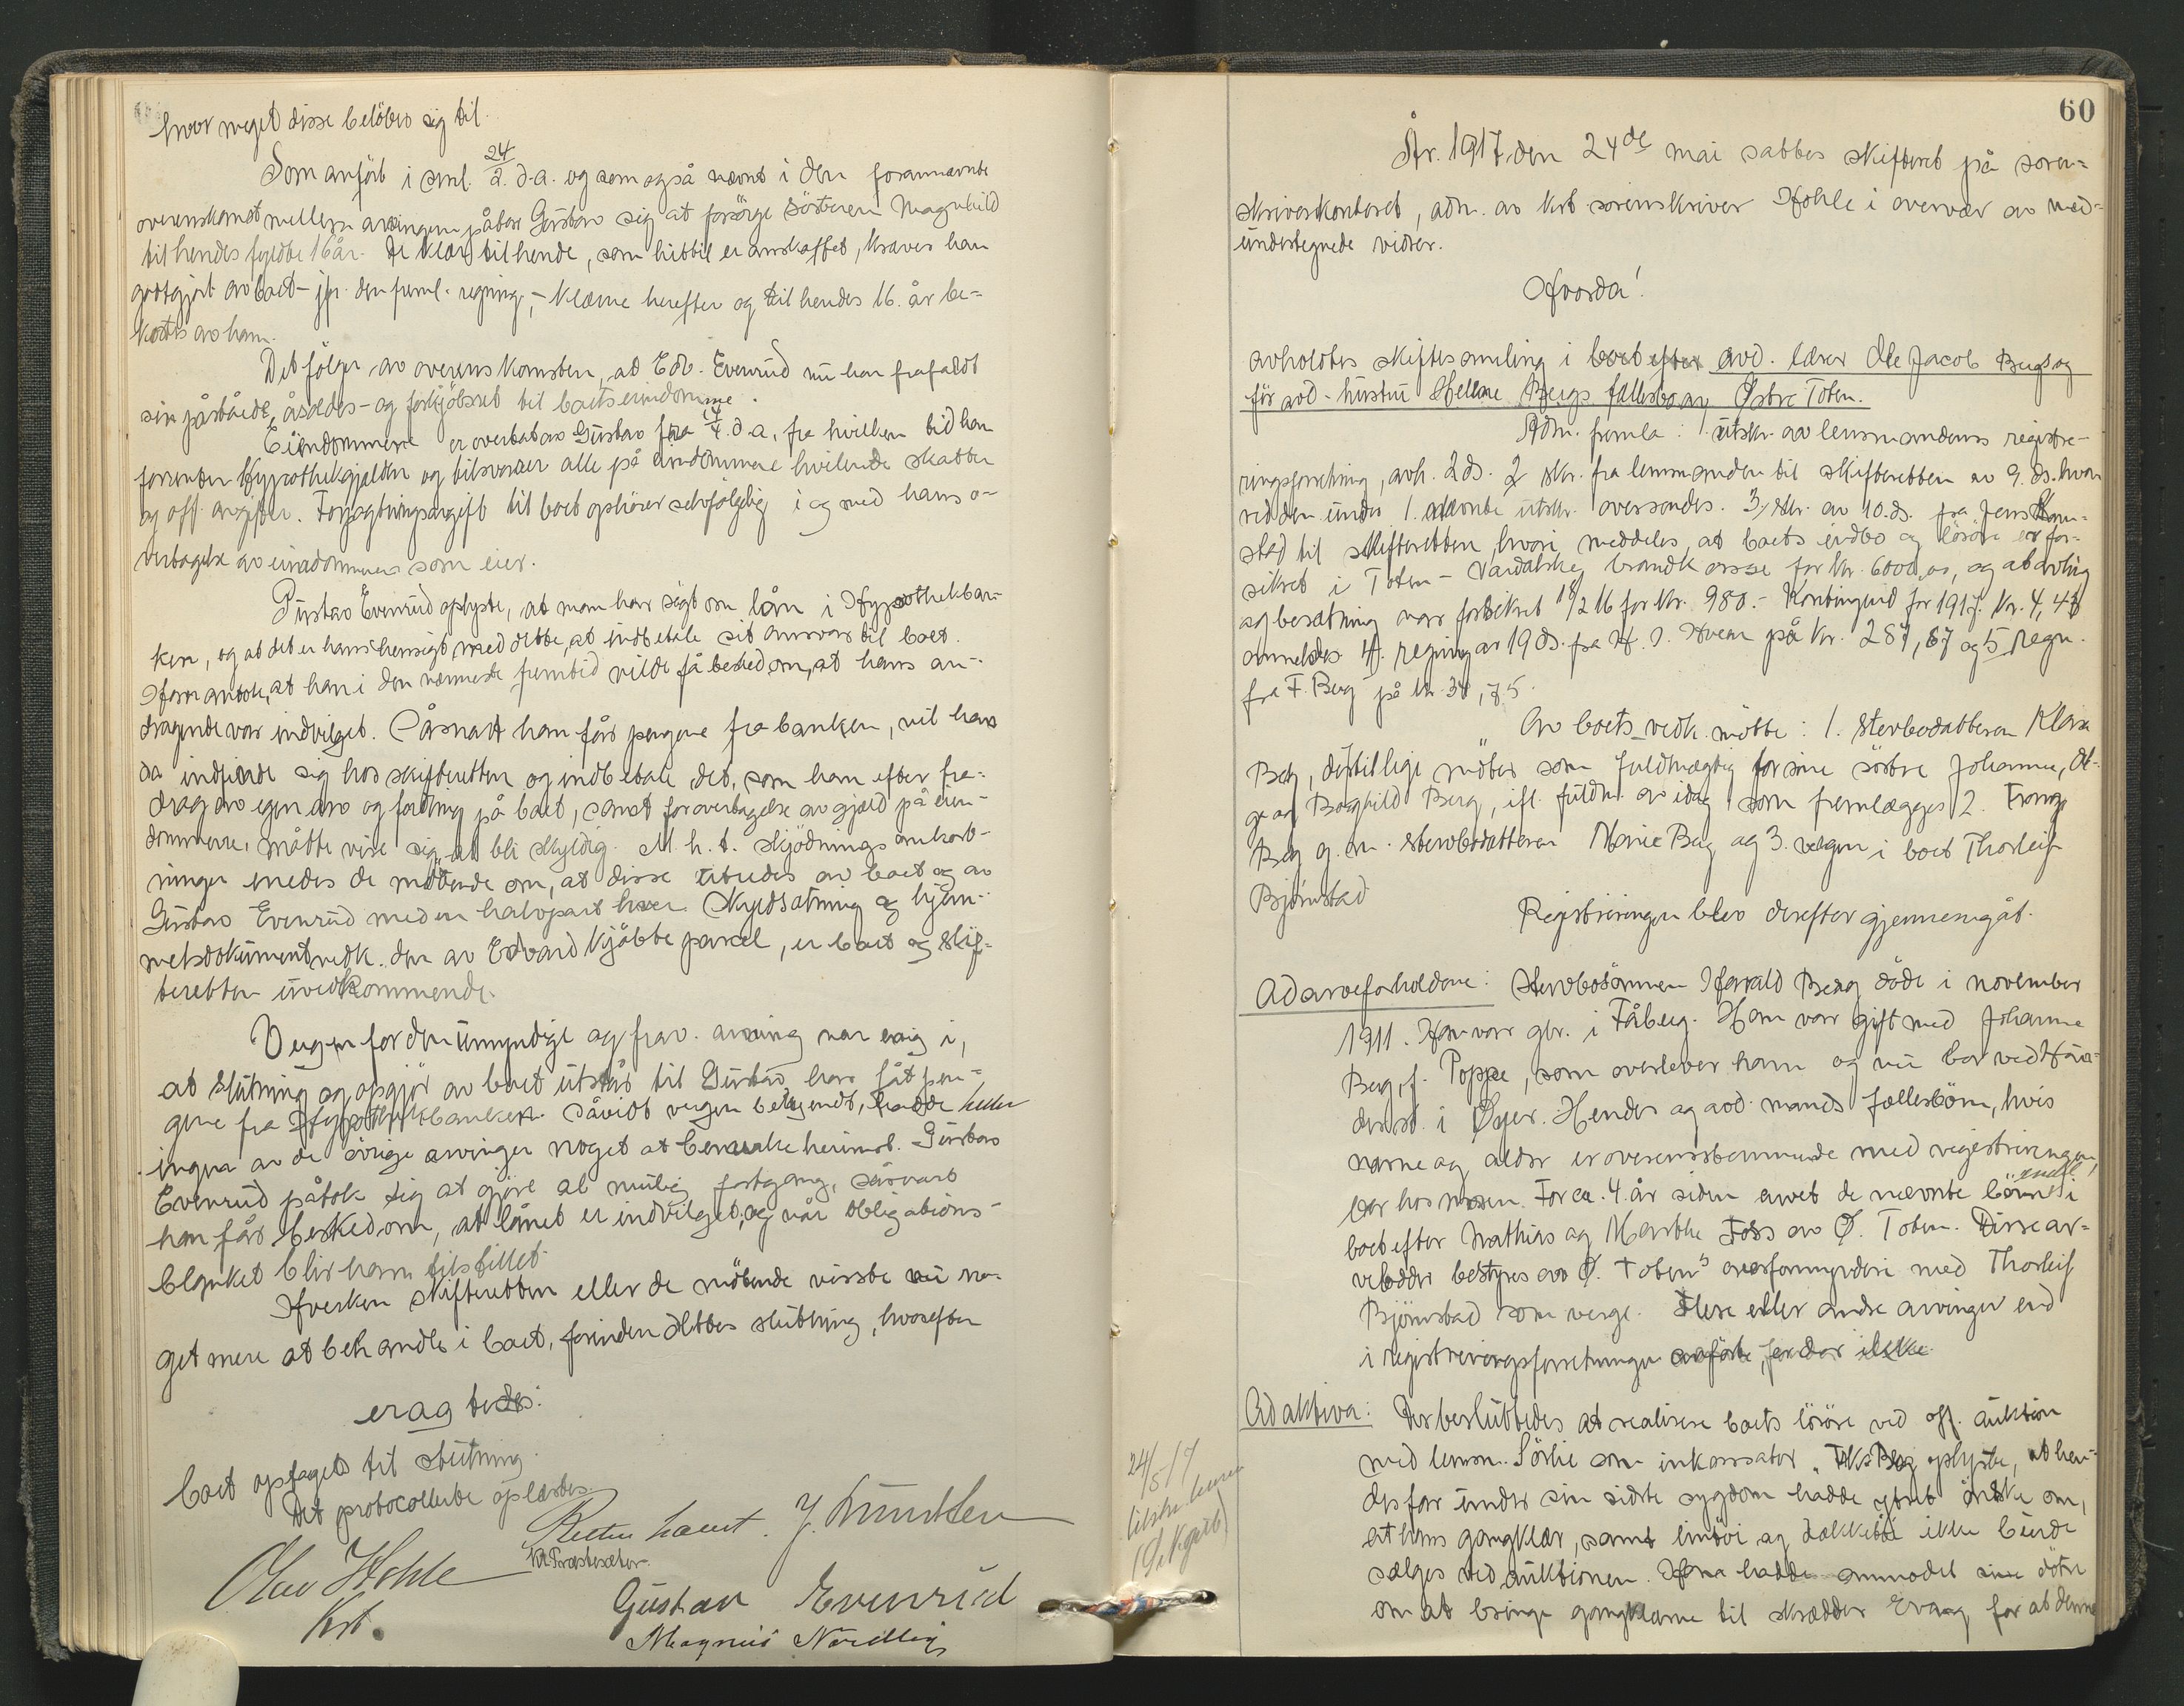 hvor meget disse beløber sig til.
Som anført i saml. 24/2 d.a. og som også nævnt i den forannævnte
overenskomst mellem arvingene påtar Gustav sig at forsørge søsteren Magnhild
til hendes fyldte 16 år. De klær til hende, som hittil er anskaffet, kræves han
godtgjort av boet – jfr. den freml. regning, – klærne herefter og til hendes 16. år be-
kostes av ham.
Det følger av overenskomsten, at Edv. Evenrud nu har frafaldt
sin påståede åsædes- og forkjøbsret til boets eiendomme.
Eiendommene er overtat av Gustav fra 14/4 d.a., fra hvilken tid han
forrenter hypothekgjælden og tilsvarer alle på eiendommene hvilende skatter
og off. avgifter. Forpagtningsavgift til boet ophører selvfølgelig i og med hans o-
vertagelse av eiendommene som eier.
Gustav Evenrud oplyste, at man har søgt om lån i Hypothekban-
ken, og at det er hans hensigt med dette, at indbetale sit ansvar til boet.
Han antok, at han i den nærmeste fremtid vilde få besked om, at hans an-
dragende var indvilget. Såsnart han får pengene fra banken, vil han
da indfinde sig hos skifteretten og indbetale det, som han efter fra-
drag av egen arv og fordring på boet, samt for overtagelse av gjæld på eien-
dommene, måtte vise sig at bli skyldig. M.h.t. skjødnings omkost-
ninger enedes de møtende om, at disse utredes av boet og av
Gustav Evenrud med en halvpart hver. Skyldsætning og hjem-
melsdokument vedk. den av Edvard kjøbte parcel, er boet og skif-
teretten uvedkommende.
Vergen for den umyndige og frav. arving var enig i,
at slutning og opgjør av boet utstår til Gustav har fåt pen-
gene fra Hypothekbanken. Såvidt vergen bekjendt, hadde heller
ingen av de øvrige arvinger noget at bemerke herimot. Gustav
Evenrud påtok sig at gjøre al mulig fortgang, såsnart
han får besked om, at lånet er indvilget, og når obligations-
blanket blir ham tilstillet.
Hverken skifteretten eller de møtende visste nu no-
get mere at behandle i boet, forinden dettes slutning, hvorefter
eragtedes:
boet optaget til slutning.
Det protocollerte oplæstes
Olav Hohle
Kst.
J. Knudsen
Gustav Evenrud
Magnus Nordlien
60
År 1917 den 24de mai sattes skifteret på soren-
skriverkontoret, adm. av kst. sorenskriver Hohle i overvær av ned-
undertegnede vidner.
Hvorda!
avholdtes skiftesamling i boet efter avd. lærer Ole Jacob Bergs og
før avd. hustru Hellene Bergs fællesbo av Østre Toten.
Adm. fremla: 1. utskr. av lensmandens registre-
ringsforretning, avh. 2 ds. 2 skr. fra lensmanden til skifteretten av 9. ds. hvor-
ved den under 1. nævnte utskr. oversendes. 3, skr. av 10. ds. fra Jens
stad til skifteretten, hvori meddeles, at boets indbo og løsøre er for-
sikret i Toten – Vardalske brandkasse for kr. 6000,00, og at avling
og besætning var forsikret 18/2 16 for kr. 980.- Kontingent for 1917 kr. 4,43
anmeldes. 4. regning av 19 ds. fra H. J. Hveem på kr. 287,67 og 5 regn.
fra F. Berg på kr. 34,75.
Av boets vedk. møtte: 1. Stervbodatteren Klara
Berg, dertillige møter som fuldmægtig for sine søstre Johanna, Ol-
ga og Borghild Berg, ifl. fuldm. av idag som fremlægges 2. Frants
Berg g.m. stervbodatteren Marie Berg og 3. vergen i boet Thorleif
Bjørnstad
Registreringen blev derefter gjennemgåt.
Ad arveforholdene: Stervbosønnen Harald Berg døde i november
1911. Han var gbr. i Fåberg. Han var gift med Johanne
Berg, f. Poppe, som overlever ham og nu bor ved Hun-
der st. i Øyer. Hendes og avd. mands fællesbørn, hvis
navne og alder er overensstemmende med registreringen,
bor hos moren. For ca. 4 år siden arvet de nævnte børn endel i
boet efter Mathias og Marthe Foss av Ø. Toten. Disse ar-
velodder bestyres av Ø. Totens overformynderi med Thorleif
Bjørnstad som verge. Flere eller andre arvinger end
i registreringsforretningen anførte, er der ikke.
Ad aktiva: Der besluttedes at realisere boets løsøre ved off. auktion
med lensm. Sørlie som inkassator. Frk. Berg oplyste, at hen-
des far under sin sidste sygdom hadde ytret ønske om,
at hans gangklær, samt lintøi og dækketøi ikke burde
sælges ved auktionen. Han hadde anmodet sine døtre
om at bringe gangklærne til skrædder Evang for at denne
24/5 17